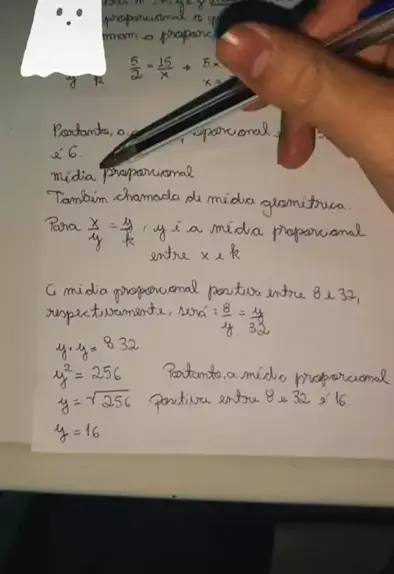 proporcional
proporc
5/2 = 15/x → 5x
x =
Portanto, a proporcional
é 6.
média proporcional
Também chamada de média geométrica.
Para x/y = y/k, y é a média proporcional
entre x e k
A média proporcional positiva entre 8 e 32,
respectivamente, será: 8/y = y/32
y·y = 8 32
y² = 256 Portanto, a média proporcional
y = √256 positiva entre 8 e 32 é 16.
y = 16